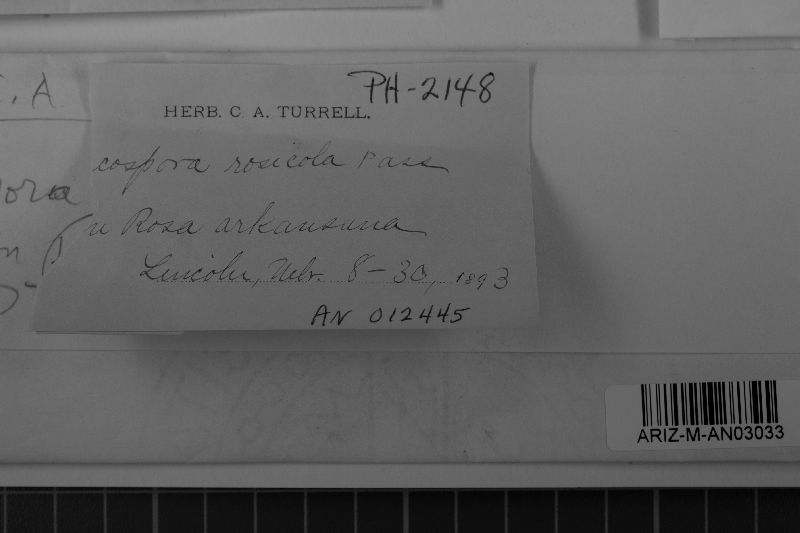 PH-2148
HERB. C. A. TURRELL.
cospora rosicola Pass
n Rosa arkansana
Lincoln, Nebr. 8-30, 1893
AN 012445
. A
ora
n
ARIZ-M-AN03033